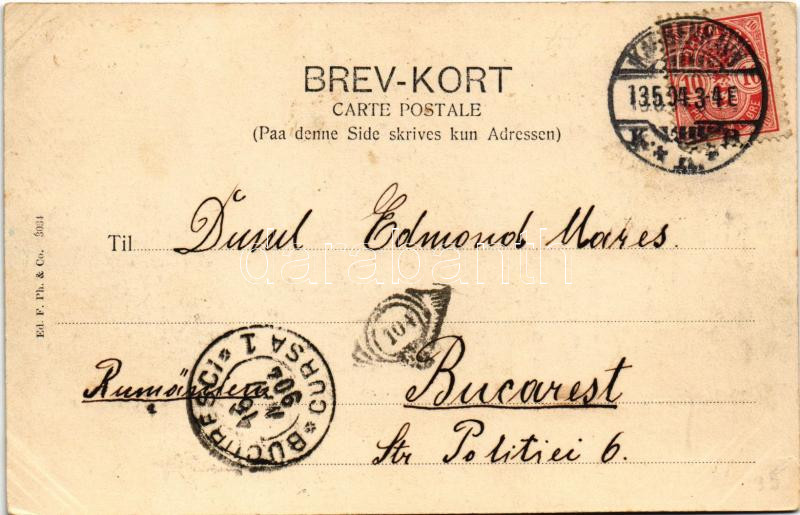 BREV-KORT
CARTE POSTALE
(Paa denne Side skrives kun Adressen)
10
ØRE
13.5.04.3-4E
K.
Til Dunul Edmond Mares.
Ed. F. Ph. & Co. 3034
104
BUCURESCI
CURSA 1
904
Rumänien
Bucarest
Str Politiei 6.
darabanth